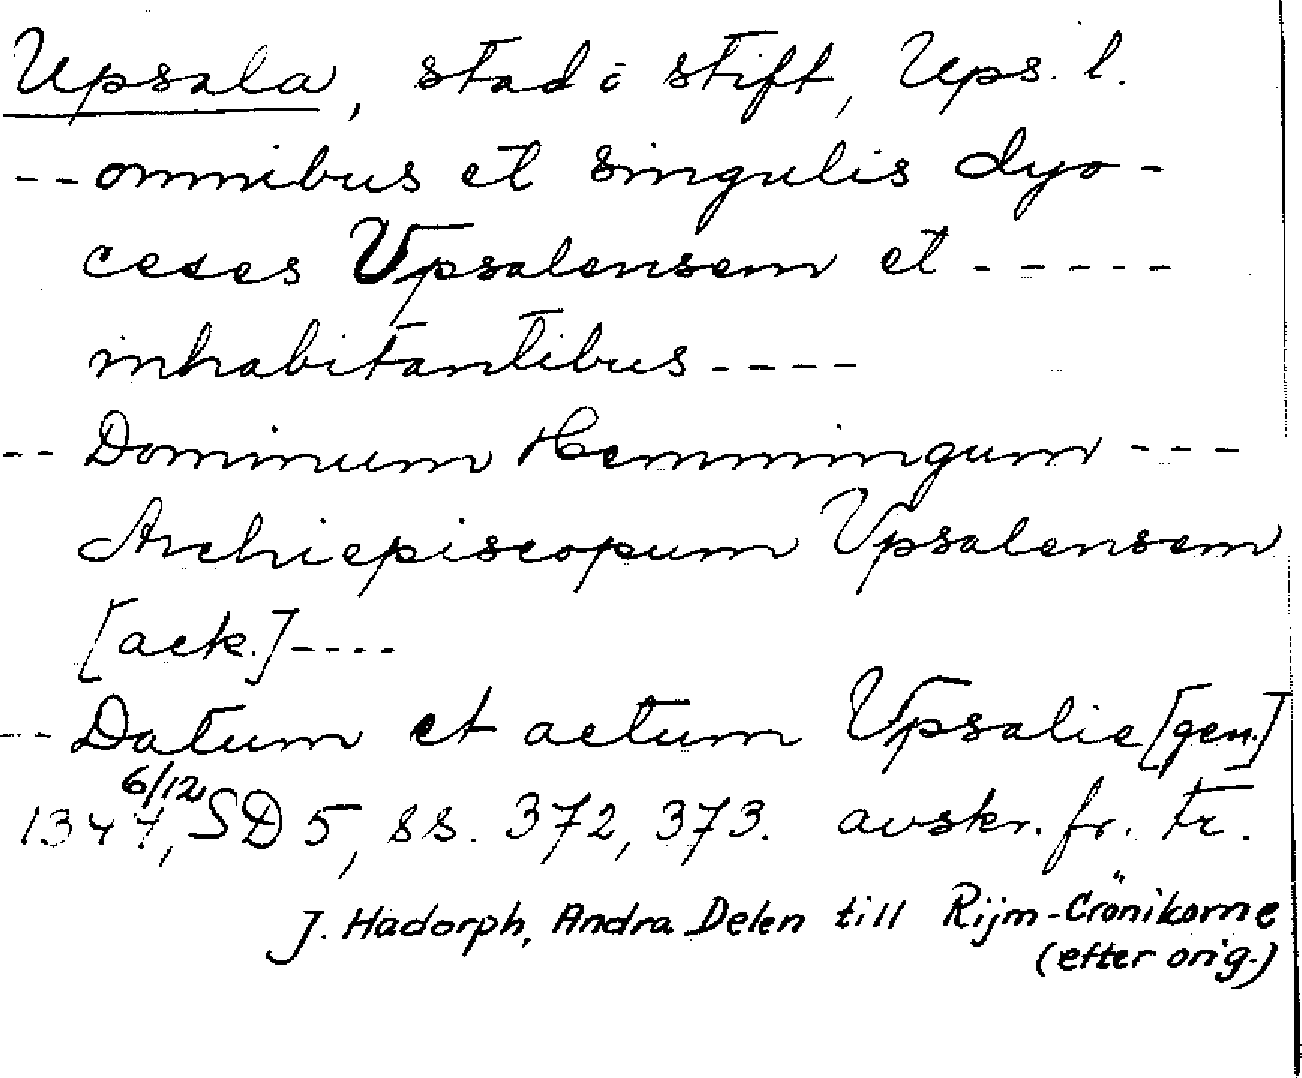 Upsala, stad o stift, Ups. l.
-- omnibus et singulis dyo-
ceses Vpsalensem et -----
inhabitantibus ----
-- Dominum Hemmingum ---
Archiepiscopum Vpsalensem
[ack.] ----
-- Datum et actum Vpsalie [gen.]
1347 6/12, SD 5, ss. 372, 373. avskr. fr. tr.
J. Hadorph, Andra Delen till Rijm-Crönikorne
(efter orig.)